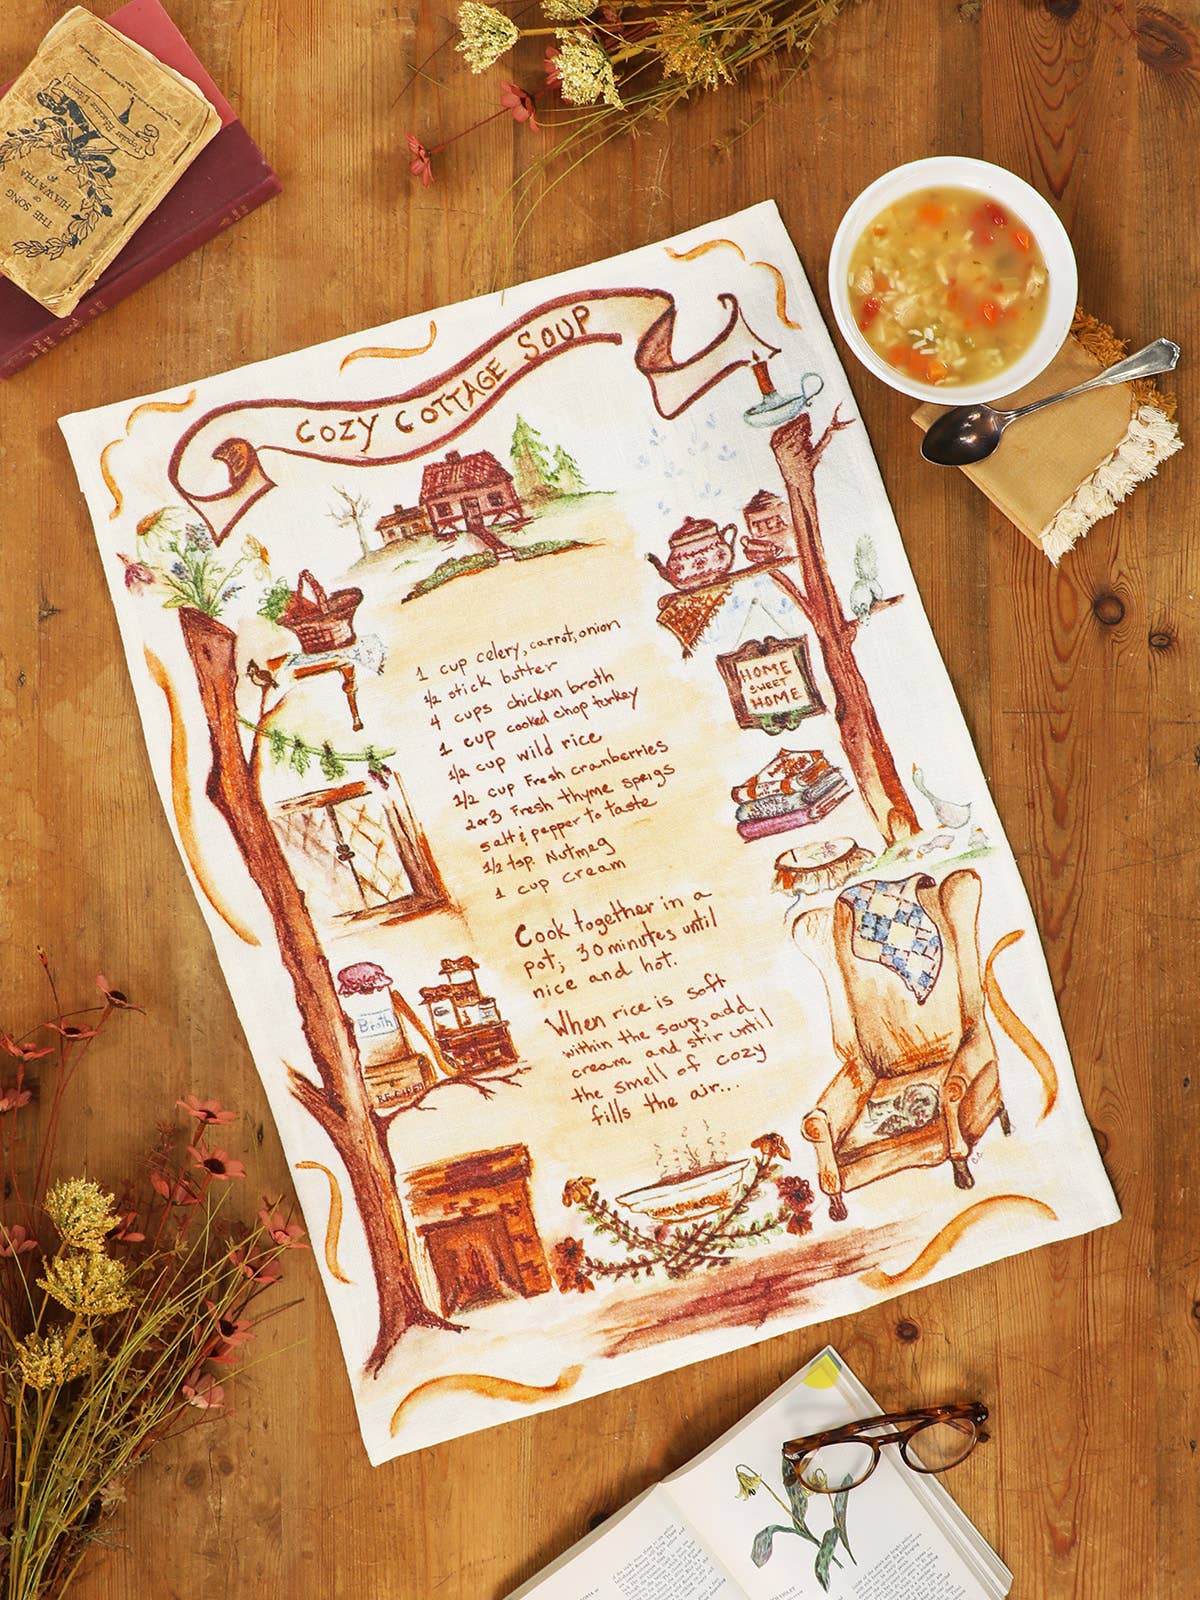 Popular Educator Library
THE SONG
OF
HIAWATHA
COZY COTTAGE SOUP
TEA
HOME
SWEET
HOME
1 cup celery, carrot, onion
1/2 stick butter
4 cups chicken broth
1 cup cooked chop turkey
1/2 cup wild rice
1/2 cup Fresh cranberries
2 or 3 Fresh thyme sprigs
salt & pepper to taste
1/2 tsp. Nutmeg
1 cup cream
Cook together in a
pot; 30 minutes until
nice and hot.
When rice is soft
within the soup, add
cream and stir until
the smell of cozy
fills the air...
Broth
RECIPES
C.C.